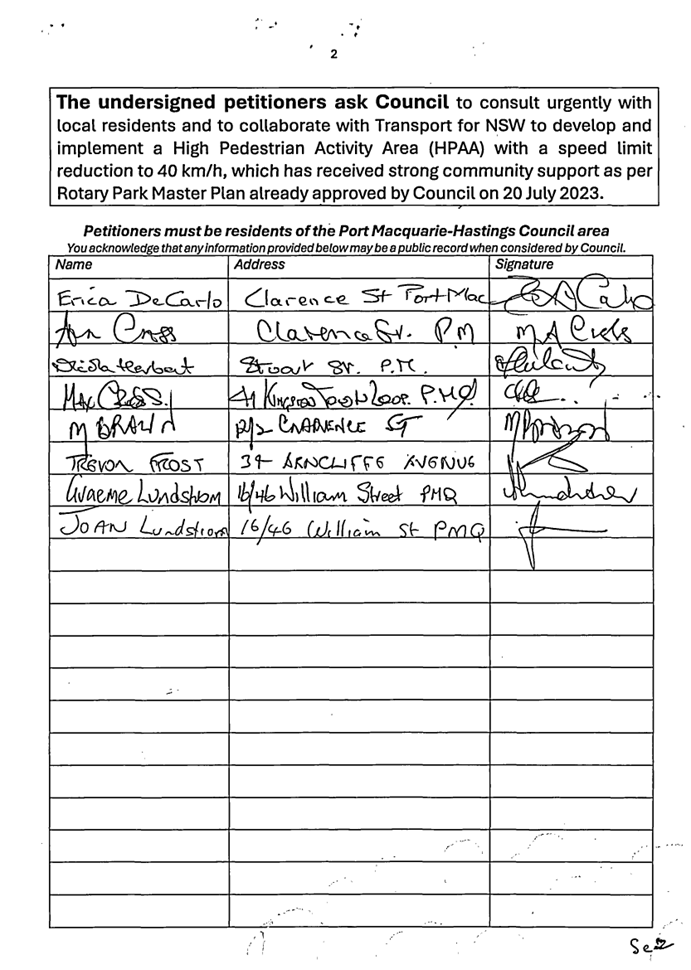 2
The undersigned petitioners ask Council to consult urgently with
local residents and to collaborate with Transport for NSW to develop and
implement a High Pedestrian Activity Area (HPAA) with a speed limit
reduction to 40 km/h, which has received strong community support as per
Rotary Park Master Plan already approved by Council on 20 July 2023.
Petitioners must be residents of the Port Macquarie-Hastings Council area
You acknowledge that any information provided below may be a public record when considered by Council.
Name Address Signature
Erica DeCarlo Clarence St Port Mac
Ann Cross Clarence St. PM M A Cross
Herbert Stuart St. P.M.
Max Cross. 41 Kingston Town Loop. P.M.Q.
M BRAUN CLARENCE ST
TREVOR FROST 37 ARNCLIFFE AVENUE
Graeme Lundstrom 16/46 William Street PMQ
JOAN Lundstrom 16/46 William St PMQ